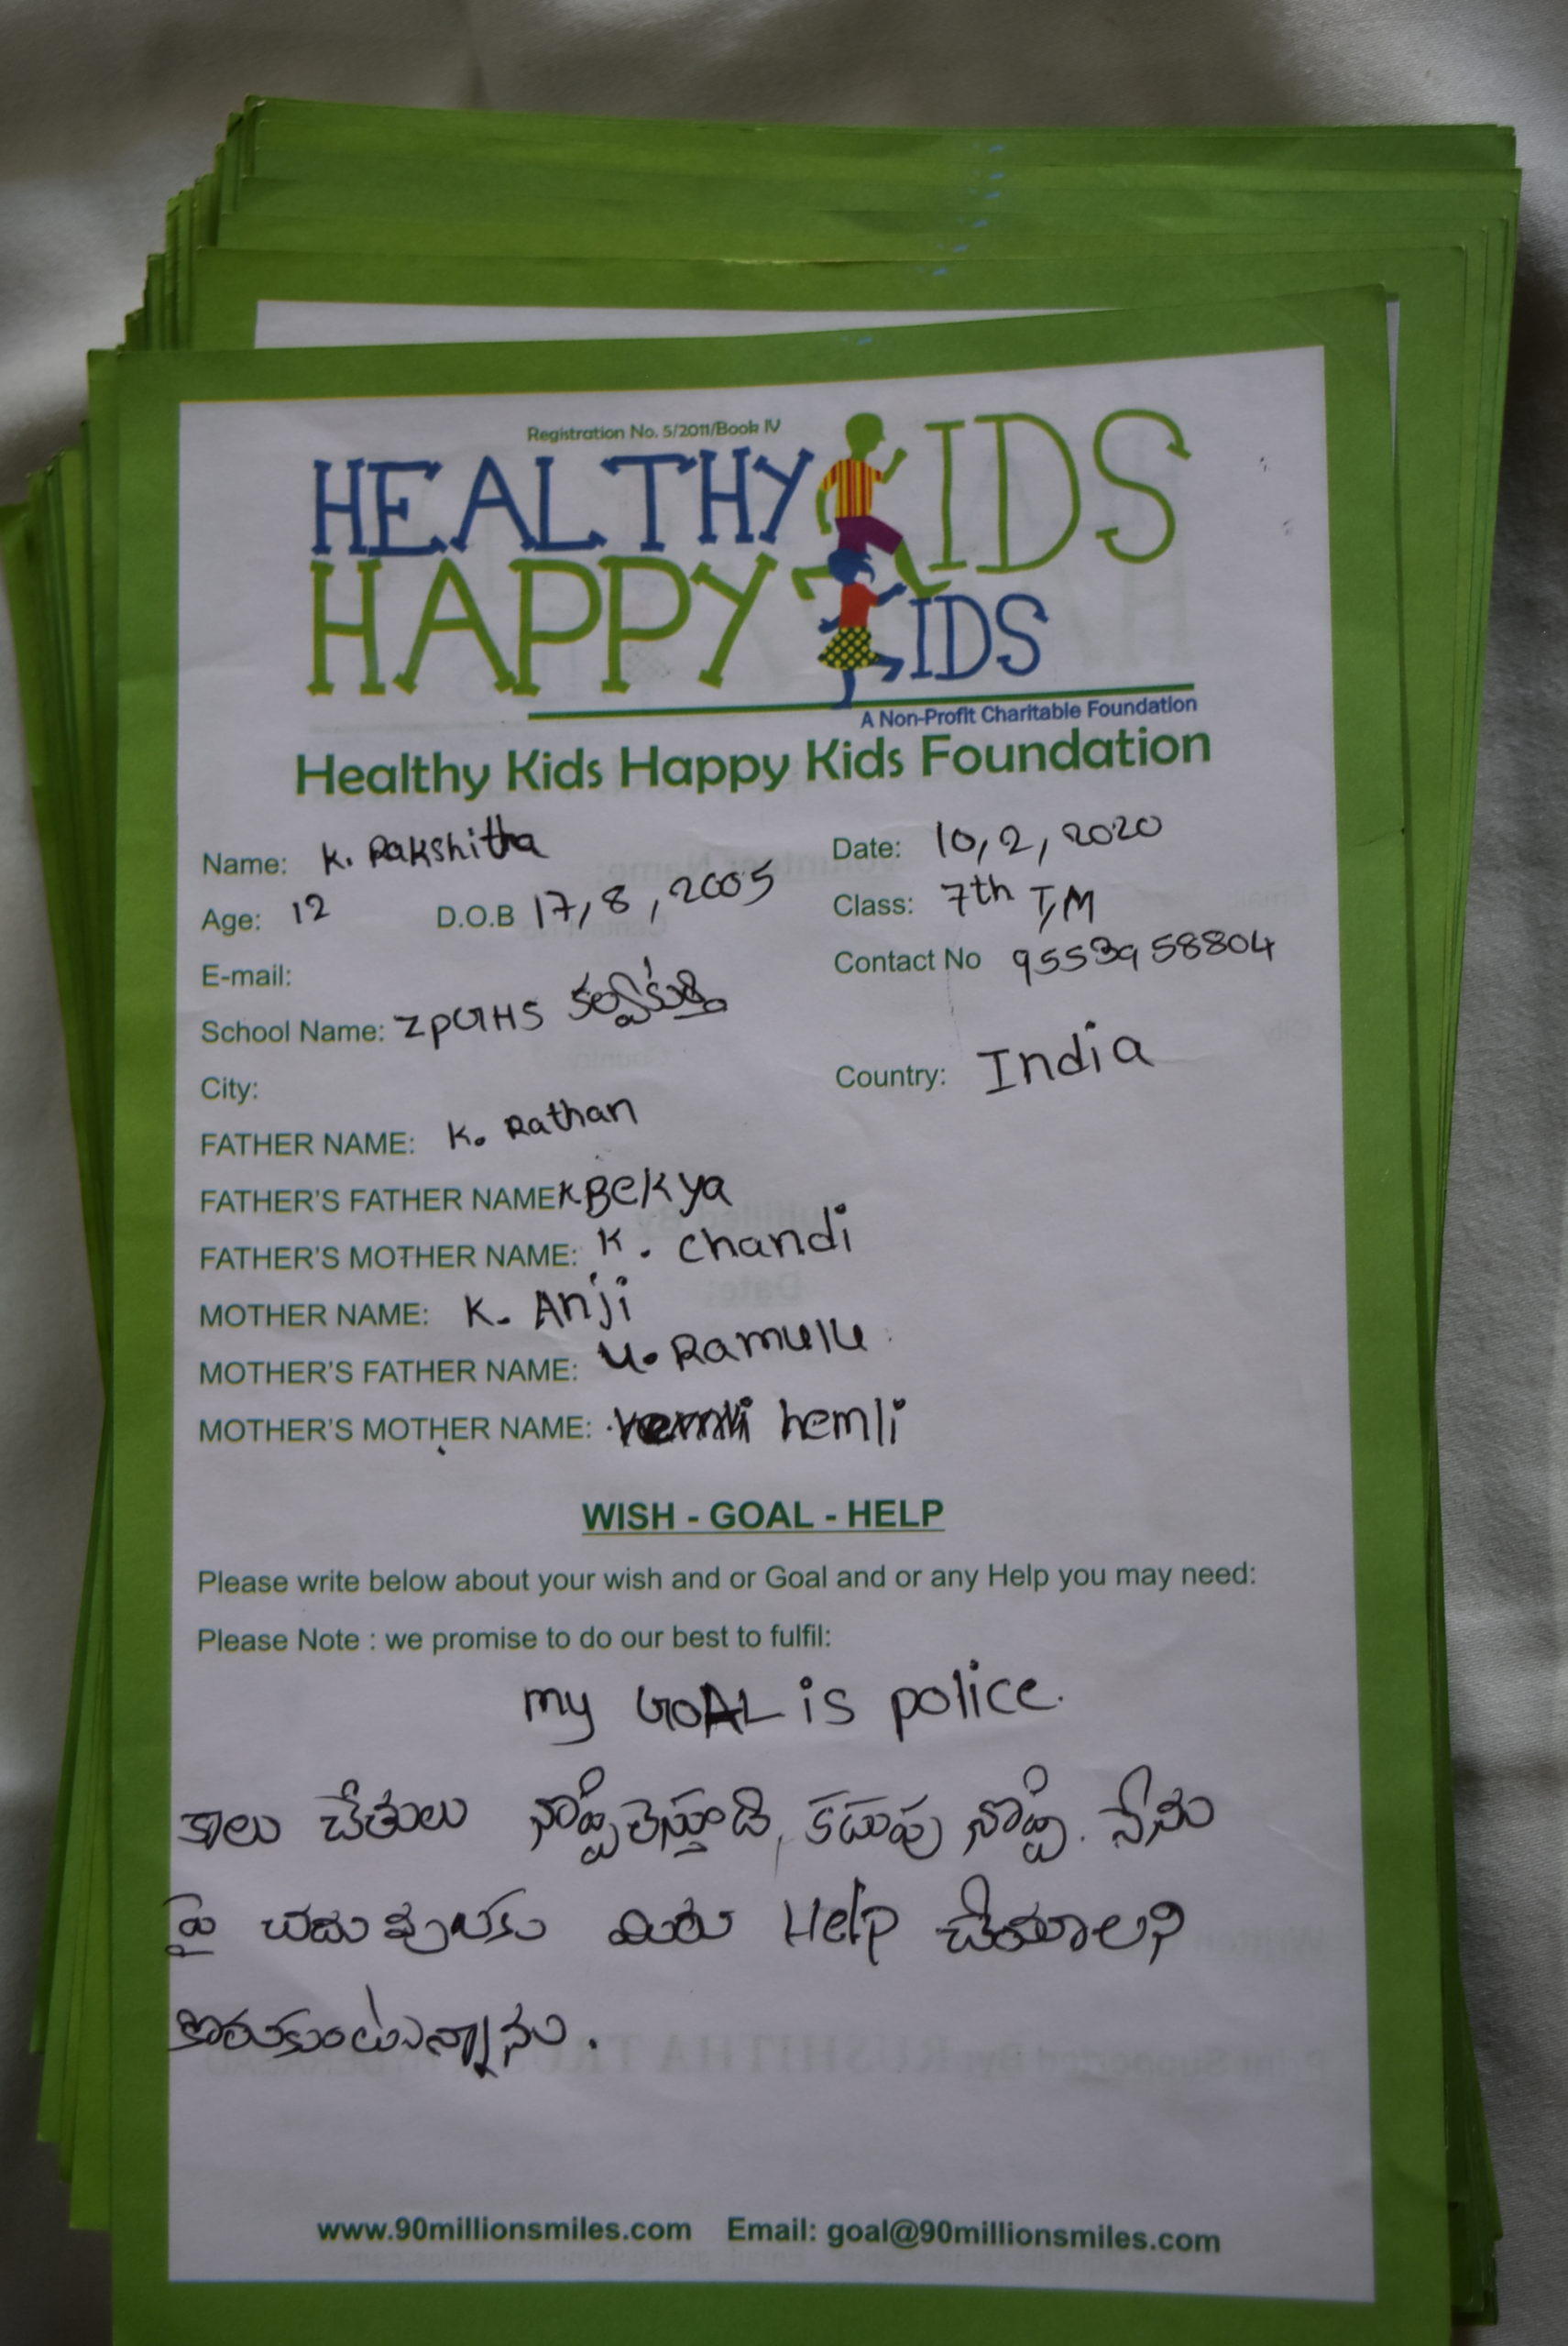 Registration No. 5/2011/Book IV
HEALTHY KIDS
HAPPY KIDS
A Non-Profit Charitable Foundation
Healthy Kids Happy Kids Foundation
Name: K. Rakshitha Date: 10, 2, 2020
Age: 12 D.O.B 17, 8, 2005 Class: 7th T/M
E-mail: Contact No 9553958804
School Name: ZPGHS
City: Country: India
FATHER NAME: K. Rathan
FATHER'S FATHER NAME K Bekya
FATHER'S MOTHER NAME: K. chandi
MOTHER NAME: K. Anji
MOTHER'S FATHER NAME: U. Ramulu
MOTHER'S MOTHER NAME: hemli
WISH - GOAL - HELP
Please write below about your wish and or Goal and or any Help you may need:
Please Note : we promise to do our best to fulfil:
my GOAL is police.
కాలు చేతులు నొప్పిలెస్తూడి, కడుపు నొప్పి. నేను
పై చదువులకు మిరు Help చేయాలని
కొరుకుంటున్నాను.
www.90millionsmiles.com Email: goal@90millionsmiles.com